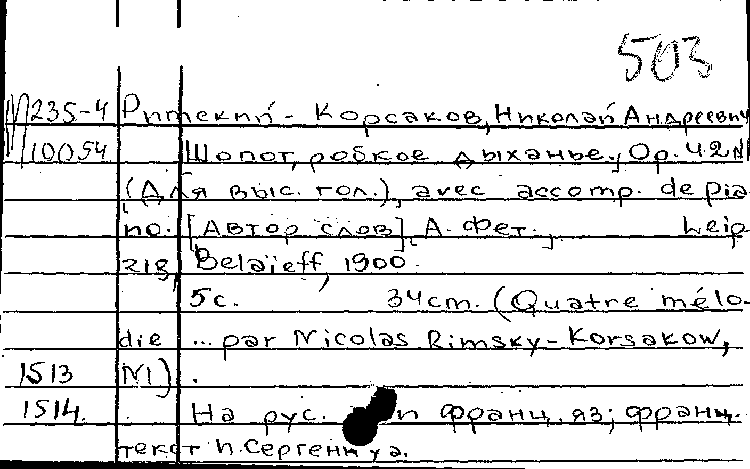 503
М235-4 Римский-Корсаков, Николай Андреевич
10054 Шопот, робкое дыханье., Op. 42 N1
(Для выс. гол.), avec accomp. de pia
no. [Автор слов] А. Фет. Leip
zig, Belaïeff, 1900.
5с. 34cm. (Quatre mélo-
die ... par Nicolas Rimsky-Korsakow,
1513 N1).
1514. На рус. и франц. яз; франц.
текст П. Сергенн